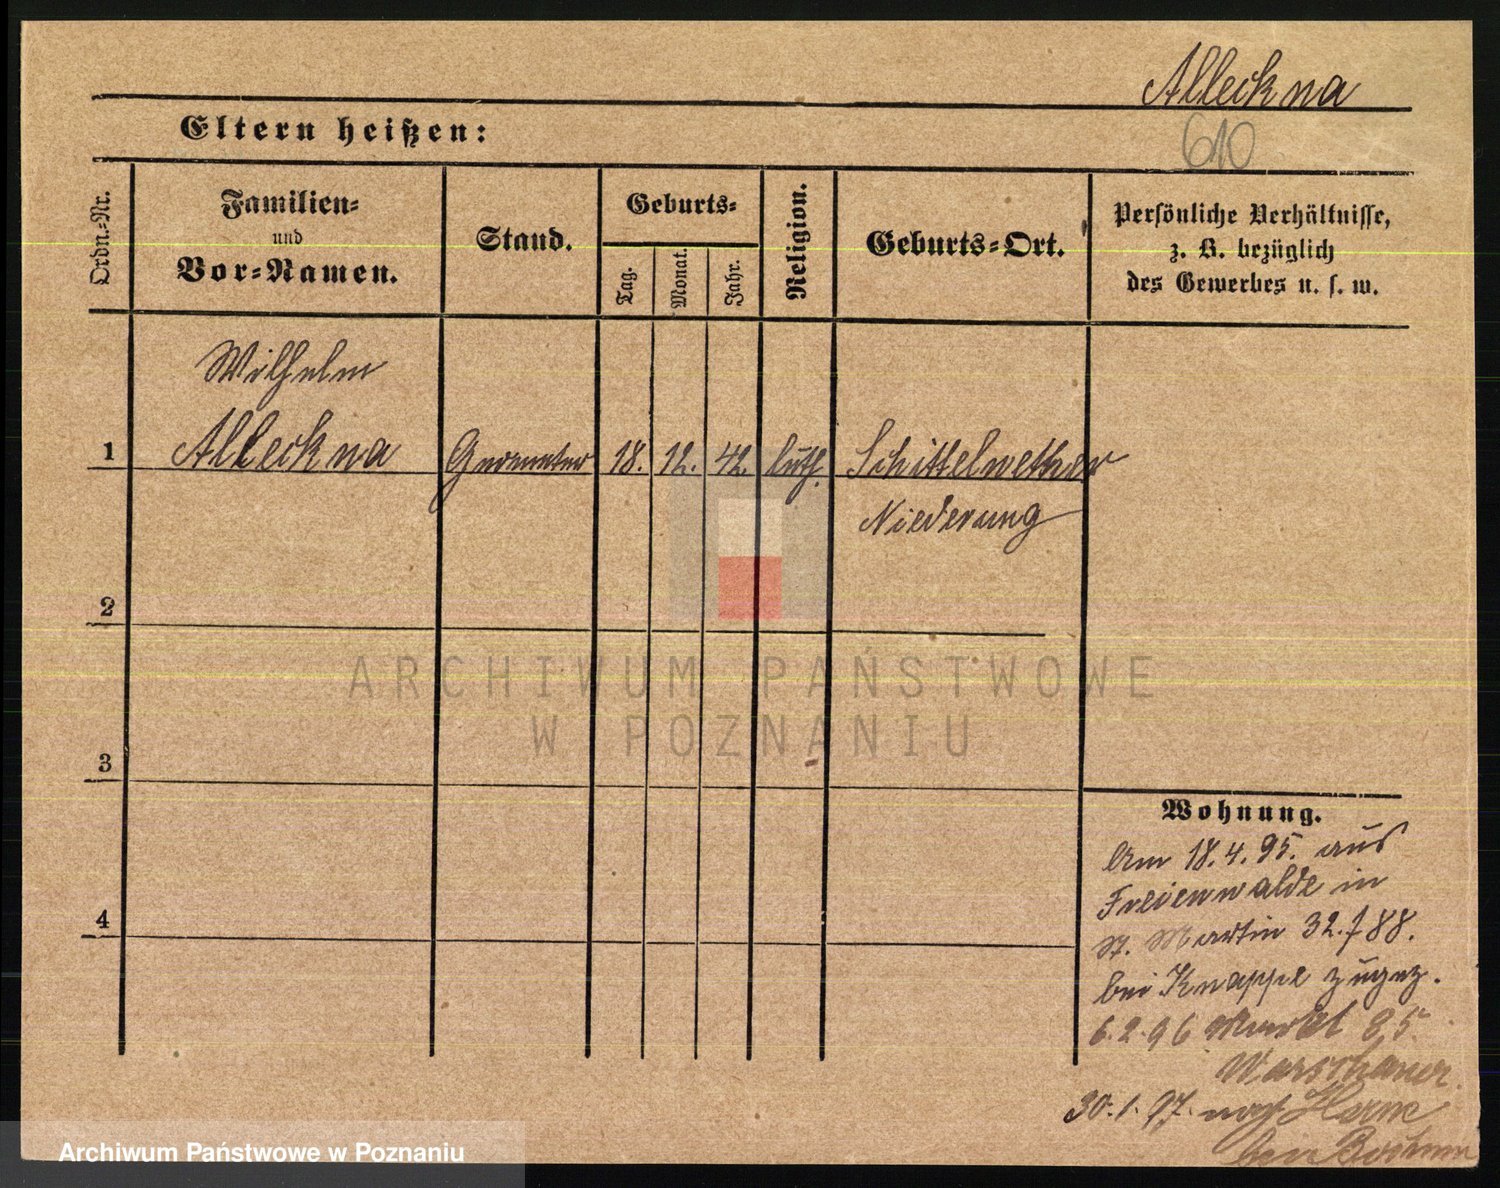 Alleckna
Eltern heißen:
610
Ordn.-Nr.
Familien-
und
Vor-Namen.
Stand.
Geburts-
Tag.
Monat.
Jahr.
Religion.
Geburts-Ort.
Persönliche Verhältnisse,
z. B. bezüglich
des Gewerbes u. s. w.
Wilhelm
1 Alleckna Geometer 18. 12. 42. luth. Schittelwethen
Niederung
2
3
4
ARCHIWUM PAŃSTWOWE
W POZNANIU
Wohnung.
Am 18.4.95. aus
Freienwalde in
St. Martin 32. 88.
bei Knappe zugez.
6.2.96 Markt 85
Warschauer.
30.1.97. nach
bei
Archiwum Państwowe w Poznaniu